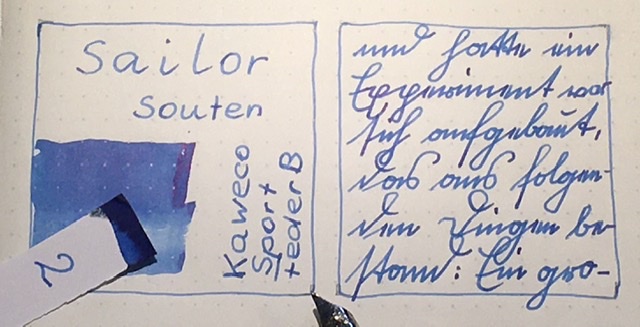 Sailor
Souten
Kaweco
Sport
Feder B
2
und hatte ein
Experiment vor
sich aufgebaut,
das aus folgen-
den Dingen be-
stand: Ein gro-